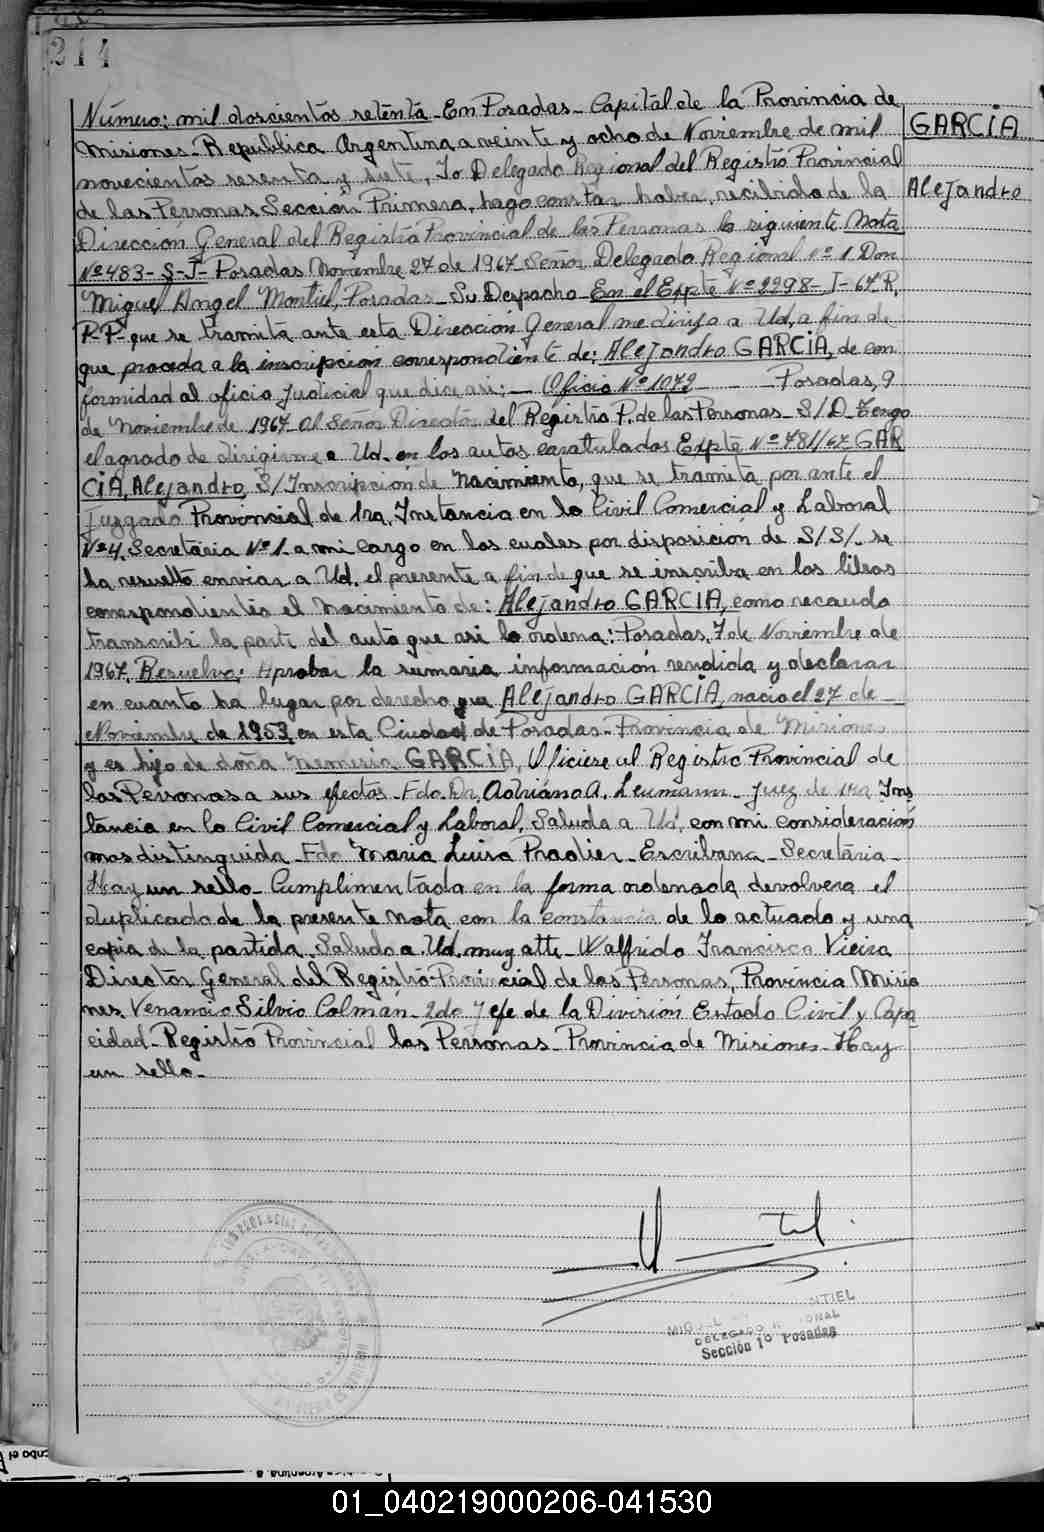 214
Número: mil doscientos setenta - En Posadas - Capital de la Provincia de
Misiones - República Argentina a veinte y ocho de Noviembre de mil
GARCIA
novecientos sesenta y siete, Yo Delegado Regional del Registro Provincial
Alejandro
de las Personas Sección Primera, hago constar haber recibido de la
Dirección General del Registro Provincial de las Personas la siguiente Nota
Nº 483 - S - J - Posadas Noviembre 27 de 1967 Señor Delegado Regional Nº 1 Don
Miguel Angel Montiel, Posadas - Su Despacho - En el Expte Nº 2298 - I - 67 R.
R-P- que se tramita ante esta Dirección General me dirijo a Ud, a fin de
que proceda a la inscripcion correspondiente de: Alejandro GARCIA, de con
formidad al oficio Judicial que dice asi: - Oficio Nº 1079 - - Posadas, 9
de Noviembre de 1967 Al Señor Director del Registro P. de las Personas - S/D - Tengo
el agrado de dirigirme a Ud. en los autos caratulados Expte Nº 781/67 GAR
CIA, Alejandro, S/ Inscripción de Nacimiento, que se tramita por ante el
Juzgado Provincial de 1ra. Instancia en lo Civil Comercial y Laboral
Nº 4. Secretaria Nº 1. a mi cargo en los cuales por disposición de S/S/. se
ha resuelto enviar a Ud. el presente a fin de que se inscriba en los libros
correspondientes el Nacimiento de: Alejandro GARCIA, como recaudo
transcribi la parte del auto que asi lo ordena: Posadas, 7 de Noviembre de
1967. Resuelvo: Aprobar la sumaria información rendida y declarar
en cuanto ha lugar por derecho que Alejandro GARCIA, nacio el 27 de
Noviembre de 1953, en esta Ciudad de Posadas - Provincia de Misiones
y es hijo de doña Nemesia GARCIA, Oficiese al Registro Provincial de
las Personas a sus efectos - Fdo. Dr. Adriano A. Leumann - Juez de 1ra Ins
tancia en lo Civil Comercial y Laboral, Saluda a Ud, con mi consideracion
mas distinguida - Fdo Maria Luisa Pradier - Escribana - Secretaria -
Hay un sello - Cumplimentada en la forma ordenada, devolvera el
duplicado de la presente Nota con la constancia de lo actuado y una
copia de la partida. Saludo a Ud. muy atte - Walfrido Francisco Vieira
Director General del Registro Provincial de las Personas, Provincia Misio
nes Venancio Silvio Colmán - 2do Jefe de la División Estado Civil y Capa
cidad - Registro Provincial las Personas - Provincia de Misiones - Hay
un sello -
NTIEL
DELEGADO
Sección 1º Posadas
01_040219000206-041530